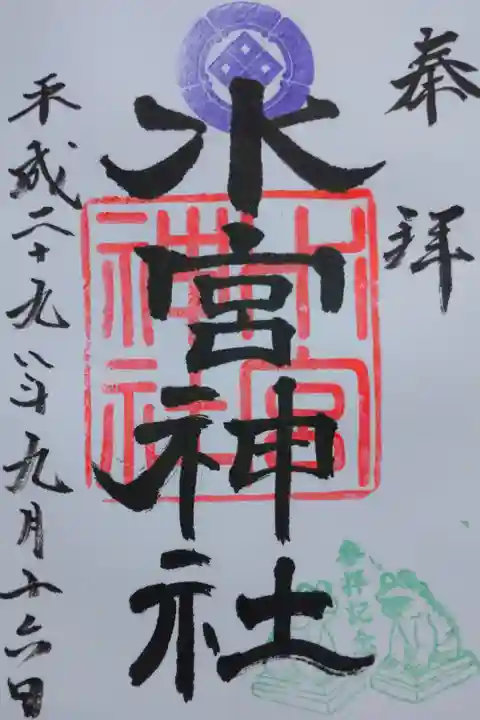 奉拝
水宮神社
水宮
神社
参拝記念
平成二十九年九月十六日